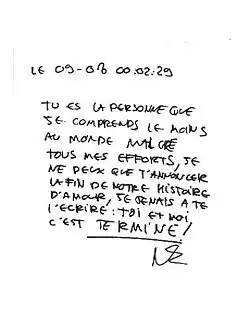 LE 09-03 00:02:29
TU ES LA PERSONNE QUE
JE COMPRENDS LE MOINS
AU MONDE MALGRÉ
TOUS MES EFFORTS, JE
NE PEUX QUE T'ANNONCER
LA FIN DE NOTRE HISTOIRE
D'AMOUR, JE TENAIS A TE
L'ECRIRE : TOI ET MOI,
C'EST TERMINÉ!